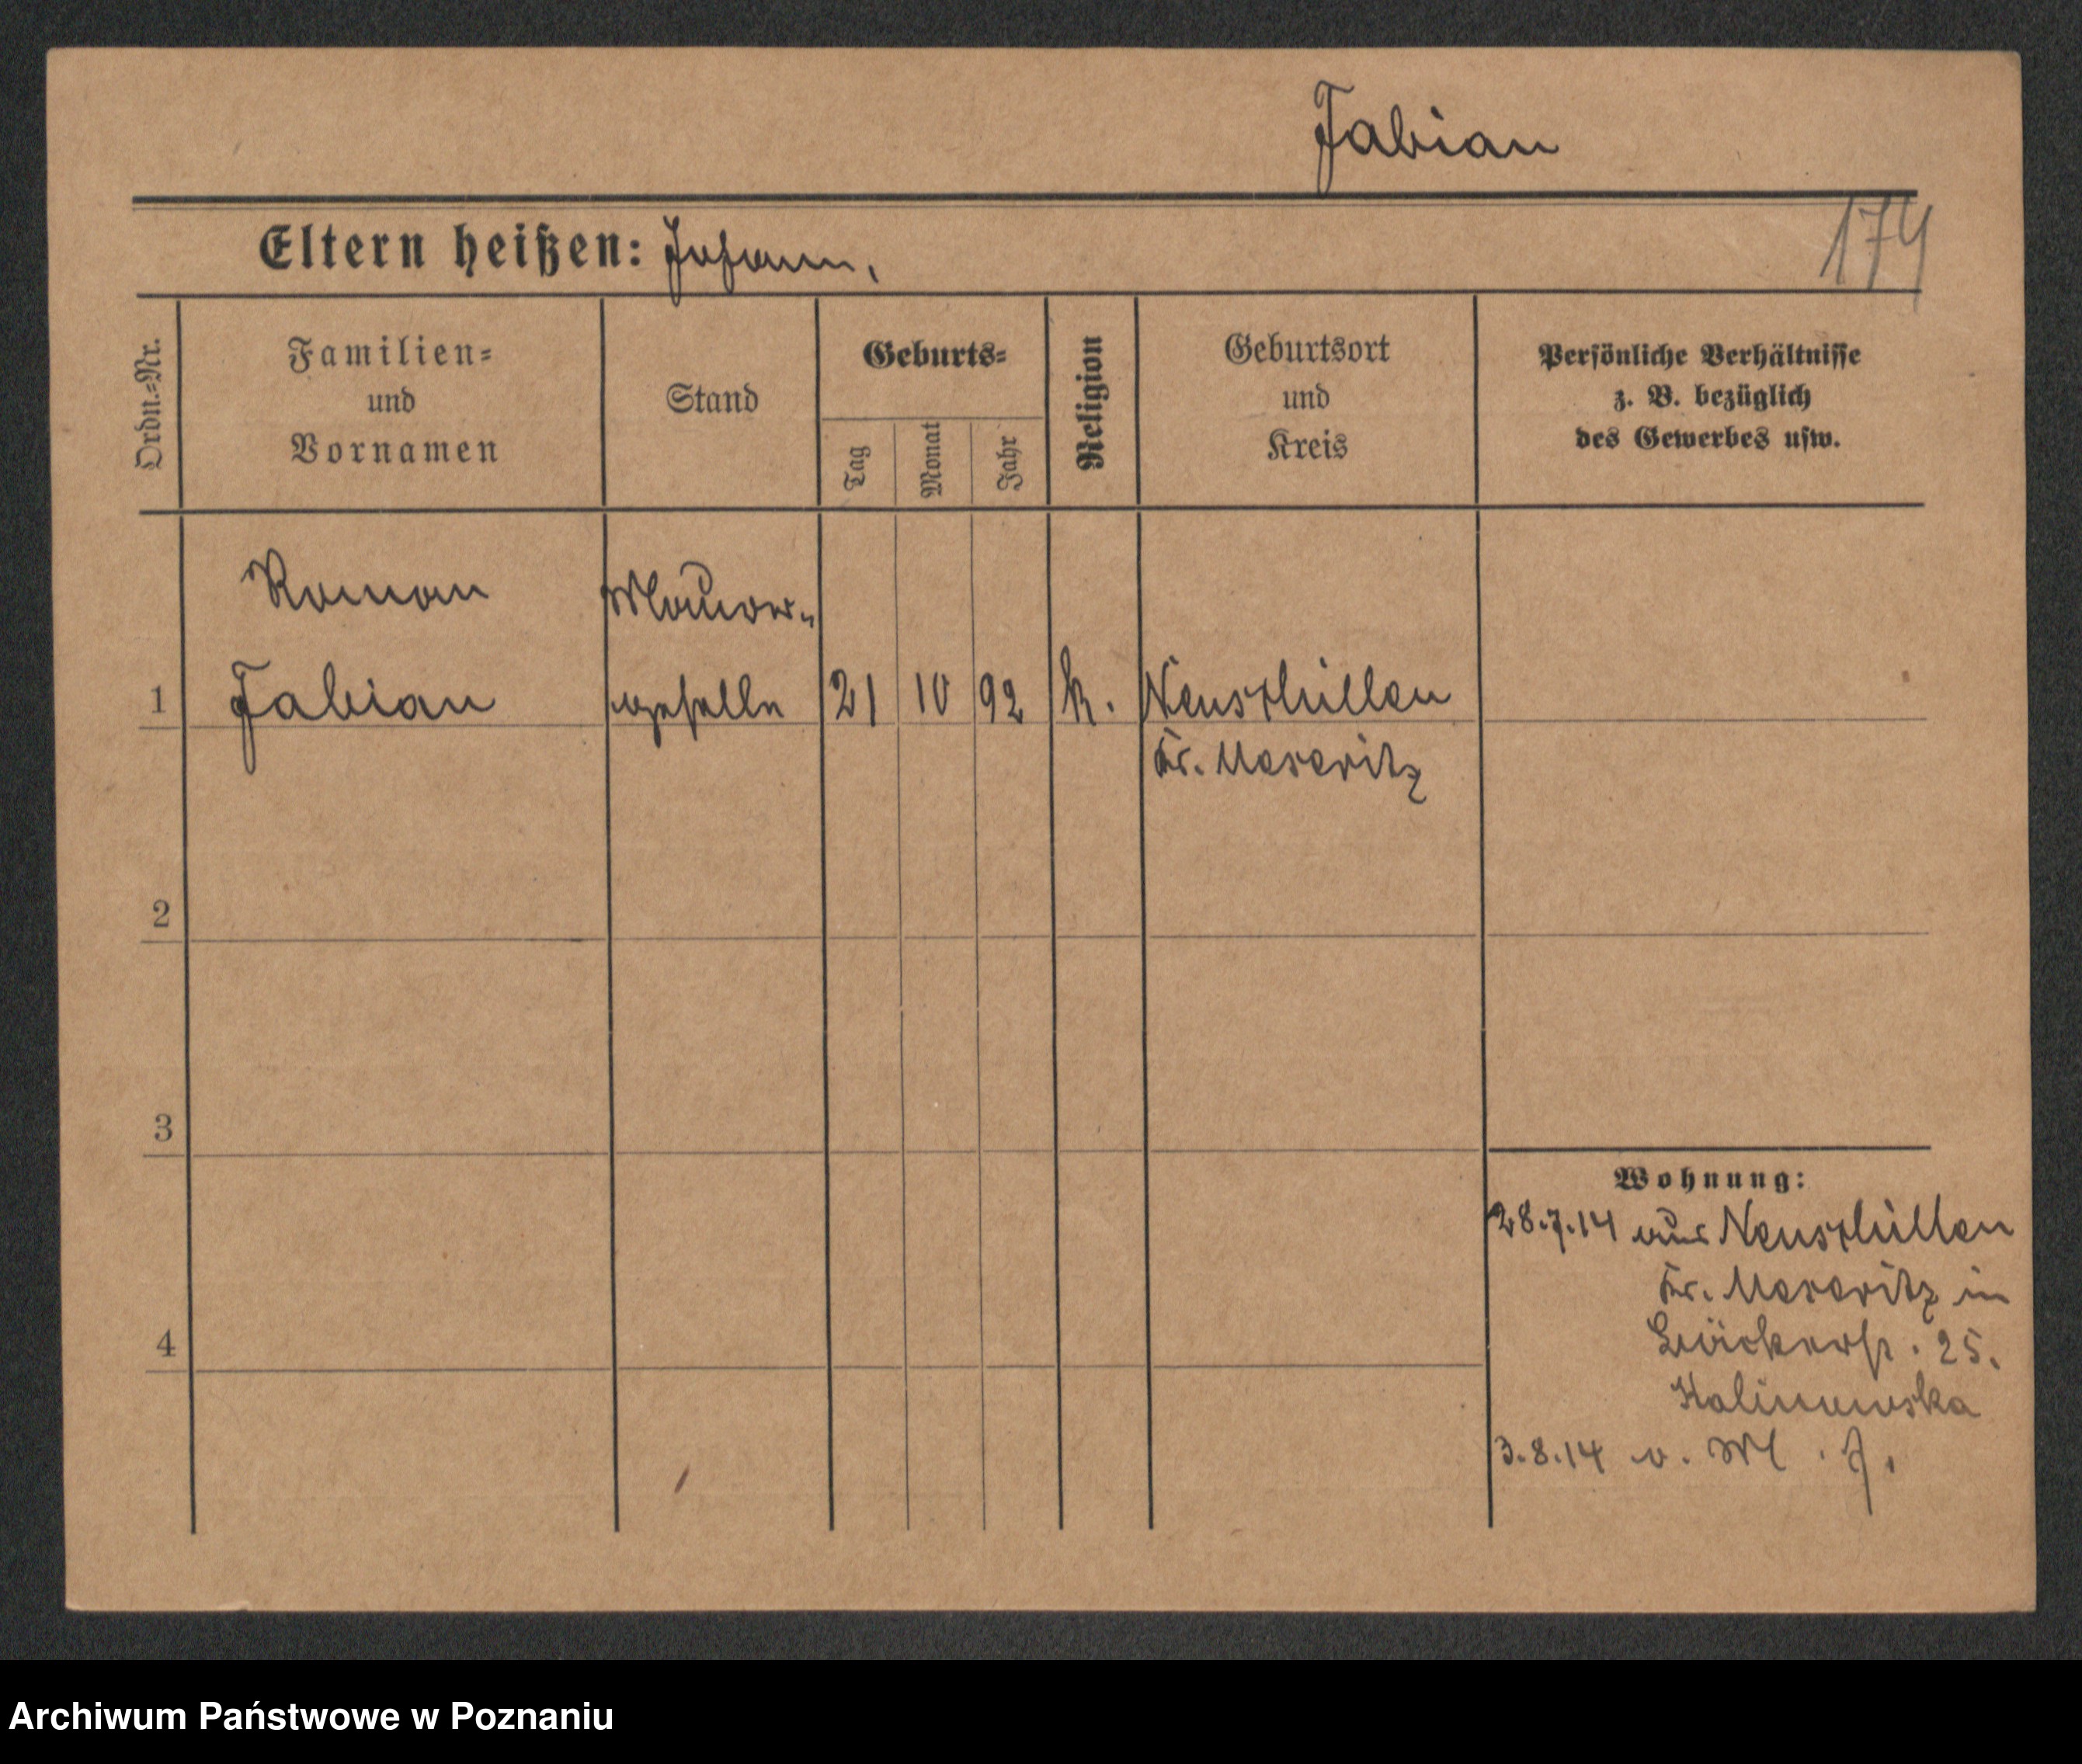 Fabian
Eltern heißen: Johann,
174
Ordn.=Nr.
Familien=
und
Vornamen
Stand
Geburts=
Tag
Monat
Jahr
Religion
Geburtsort
und
Kreis
Persönliche Verhältnisse
z. B. bezüglich
des Gewerbes usw.
Roman
Maurer=
1 Fabian geselle 21 10 92 k. Neuschillen
Kr. Meseritz
2
3
4
Wohnung:
28.7.14 aus Neuschillen
Kr. Meseritz in
Bäckerstr. 25.
Kalinowska
3.8.14 v. M
Archiwum Państwowe w Poznaniu